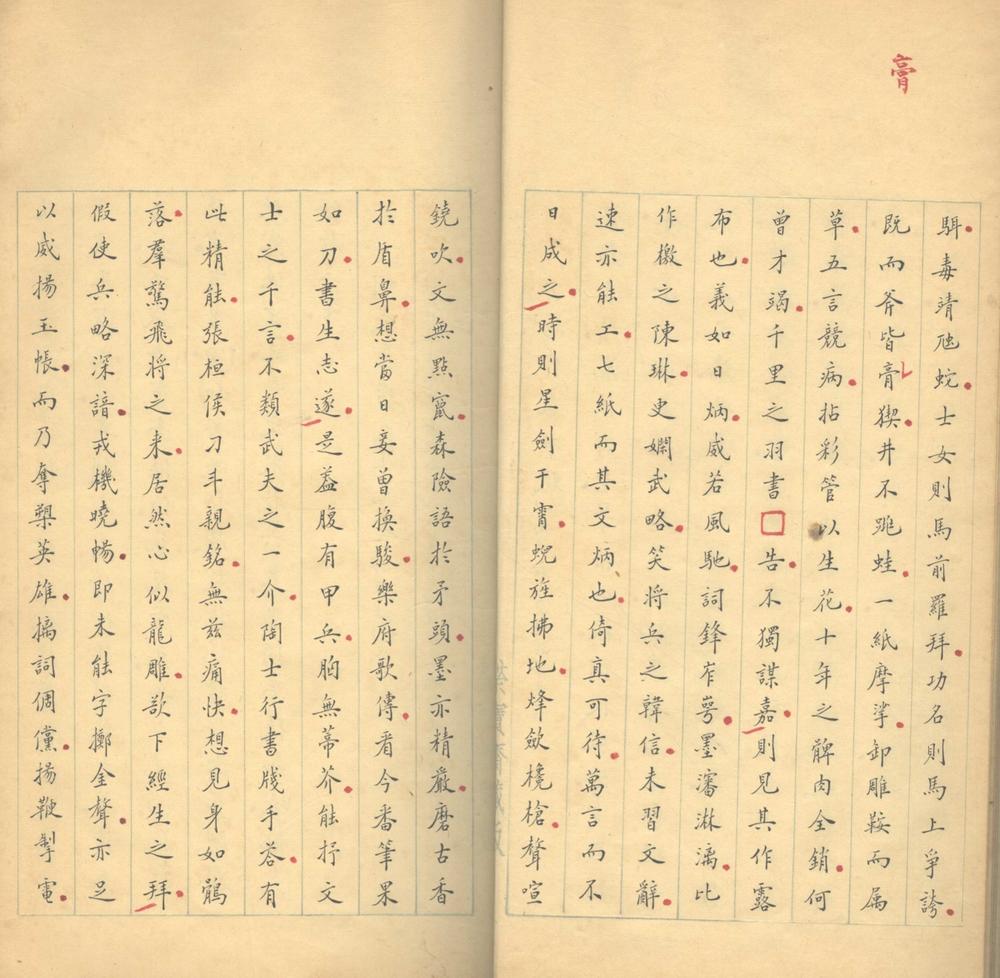 膏
駬毒靖虺蛇士女則馬前羅拜功名則馬上爭誇
既而斧皆膏猰井不跳蛙一紙摩挲卸雕鞍而属
草五言競病拈彩管以生花十年之髀肉全銷何
曾才竭千里之羽書□告不獨謀嘉則見其作露
布也義如日炳威若風馳詞鋒岝崿墨瀋淋漓比
作檄之陳琳更嫻武略笑將兵之韓信未習文辭
速亦能工七紙而其文炳也倚真可待萬言而不
日成之時則星劍干霄蜺旌拂地烽歛欃槍聲喧
鐃吹文無點竄森險語於矛頭墨亦精嚴磨古香
於盾鼻想當日妾曾換駿樂府歌傳看今番筆果
如刀書生志遂是葢腹有甲兵胸無蒂芥能抒文
士之千言不類武夫之一介陶士行書牋手荅有
此精能張桓侯刀斗親銘無茲痛快想見身如鶻
落羣驚飛將之来居然心似龍雕欲下經生之拜
假使兵略深諳戎機曉暢即未能字擲金聲亦足
以威揚玉帳而乃奪槊英雄摛詞倜儻揚鞭掣電